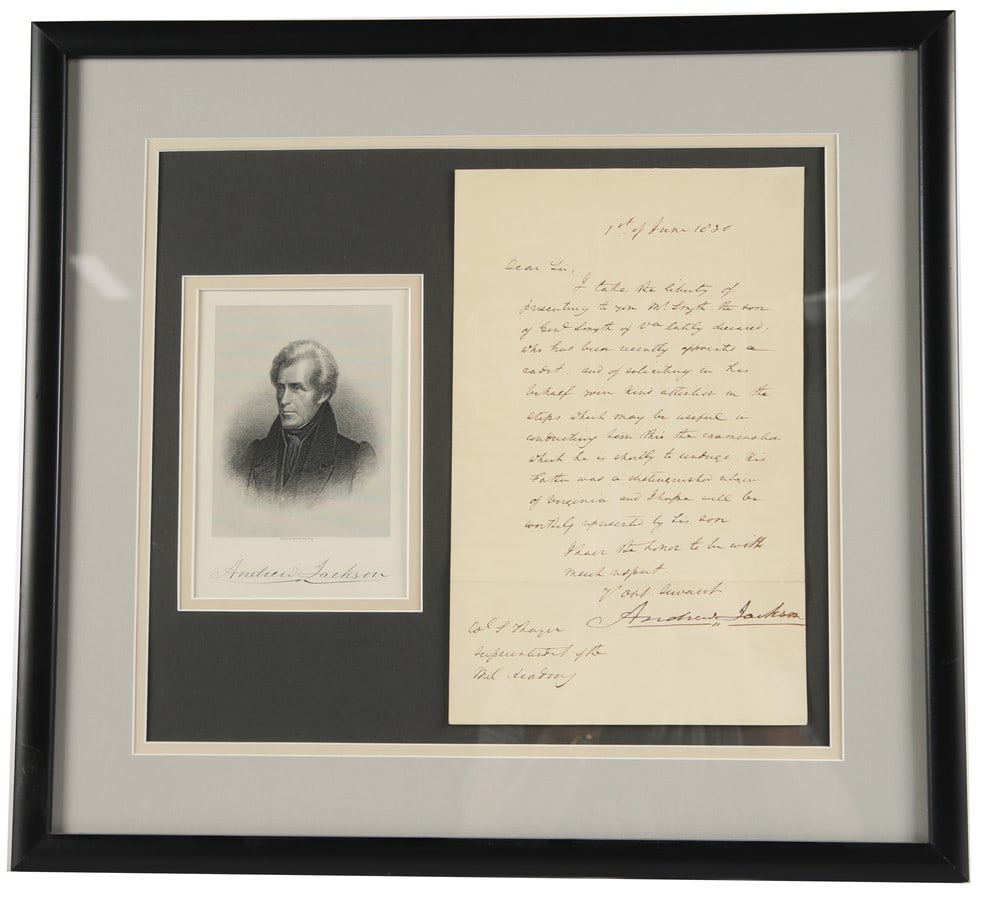 Andrew Jackson
1st. of June 1830
Dear Sir,
I take the liberty of
presenting to you Mr. Smyth the son
of Genl Smyth of Va lately deceased,
who has been recently appointed a
cadet and of soliciting in his
behalf your kind attention in the
steps which may be useful in
conducting him thro the examination
which he is shortly to undergo. His
Father was a distinguished citizen
of Virginia and I hope will be
worthily represented by his son
I have the honor to be with
much respect
Your obt servant
Andrew Jackson
Col. S. Thayer
Superintendent of the
Mil Academy